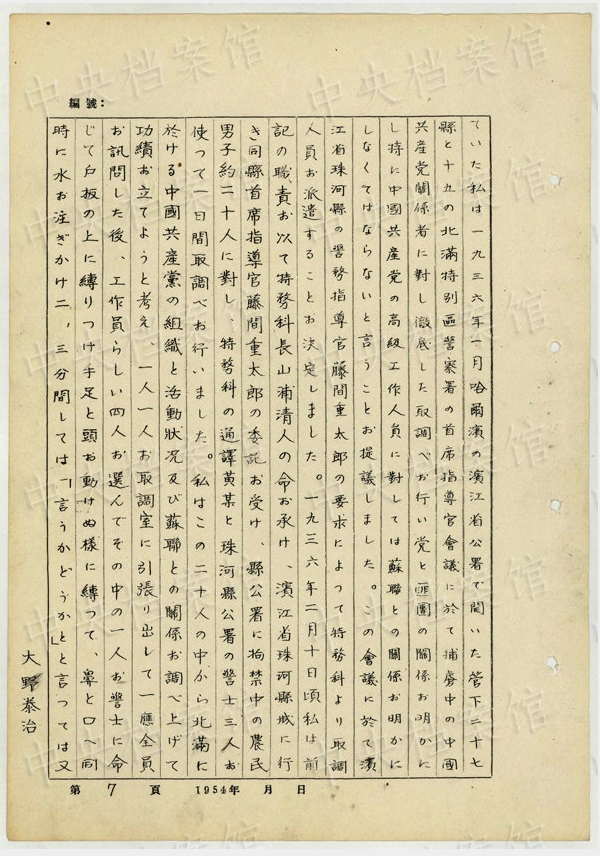 編號：
ていた私は一九三六年一月哈爾濱の濱江省公署で開いた管下二十七
縣と十九の北滿特別區警察署の首席指導官會議に於て捕虜中の中國
共産党關係者に對し徹底した取調べお行い党と匪團の関係お明かに
し特に中國共産党の高級工作人員に對しては蘇聯との関係お明かに
しなくてはならないと言うことお提議しました。この會議に於て濱
江省珠河縣の警務指導官藤間重太郎の要求によつて特務科より取調
人員お派遣することお決定しました。一九三六年二月十日頃私は前
記の職責お以て特務科長山浦清人の命お承け、濱江省珠河縣城に行
き同縣首席指導官藤間重太郎の委託お受け、縣公署に拘禁中の農民
男子約二十人に對し、特務科の通譯黃某と珠河縣公署の警士三人お
使つて一日間取調べお行いました。私はこの二十人の中から北滿に
於ける中國共産黨の組織と活動狀况及び蘇聯との關係お調べ上げて
功績お立てようと考え、一人一人お取調室に引張り出して一應全員
お訊問した後、工作員らしい四人お選んでその中の一人お警士に命
じて戸板の上に縛りつけ手足と頭お動けぬ様に縛つて、鼻と口へ同
時に水お注ぎかけ二、三分間しては「言うかどうか」とと言つては又
大野泰治
第 7 頁 1954年 月 日
中央档案馆
中央档案馆
中央档案馆
中央档案馆
中央档案馆
中央档案馆
中央档案馆
中央档案馆